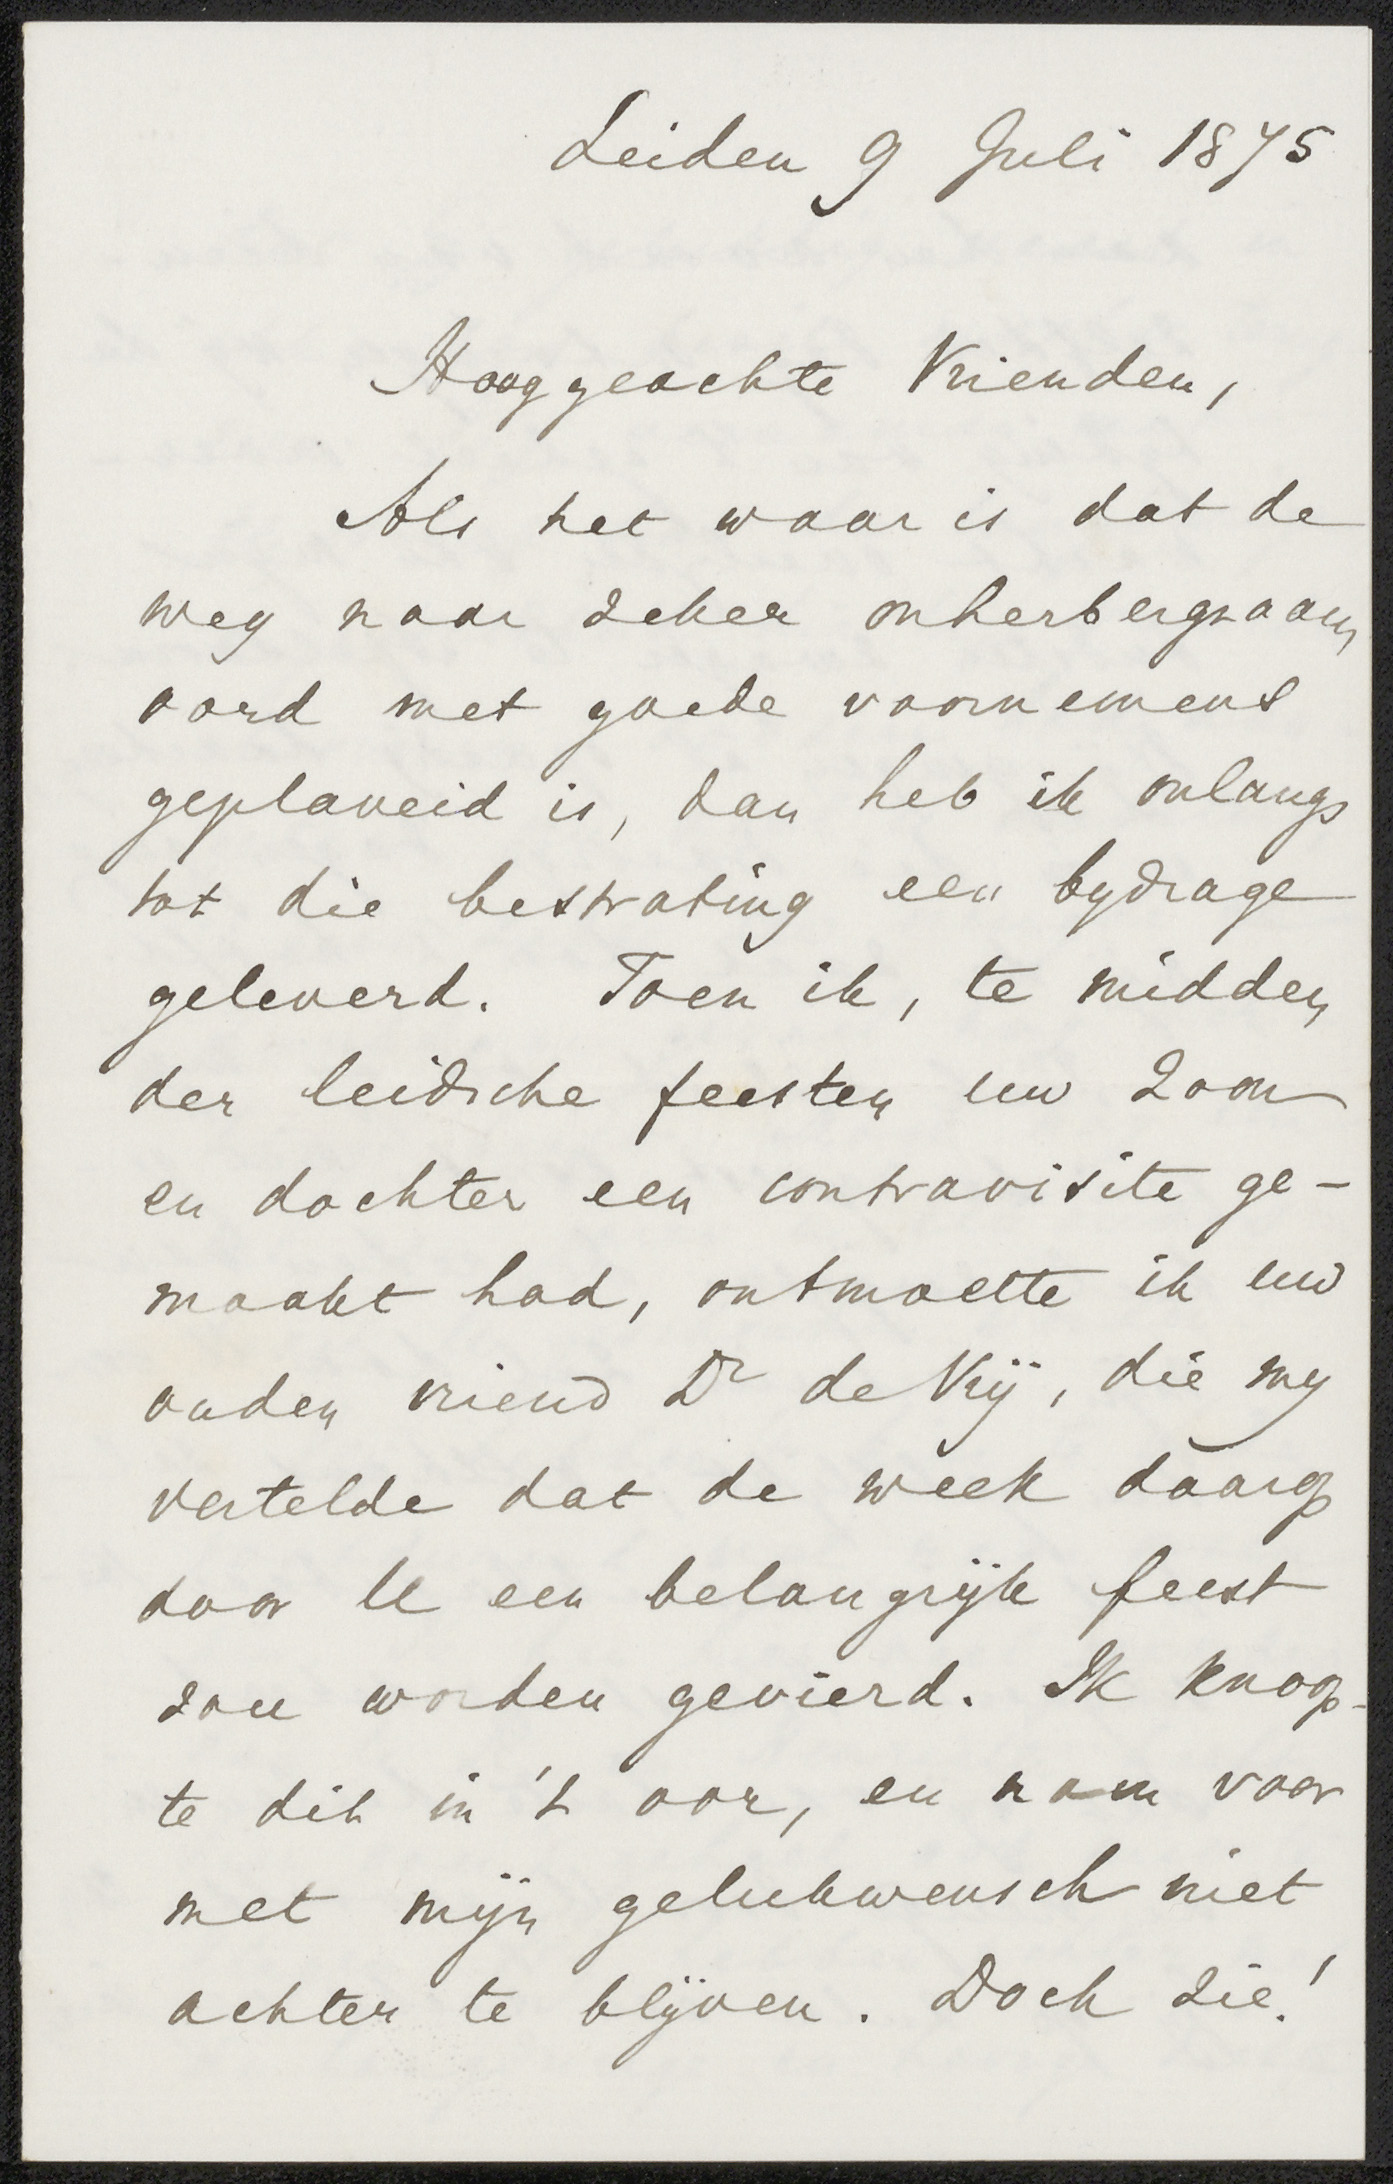 Leiden 9 Juli 1875
Hooggeachte Vrienden,
Als het waar is dat de
weg naar zeker onherbergzaam
oord met goede voornemens
geplaveid is, dan heb ik onlangs
tot die bestrating een bydrage
geleverd. Toen ik, te midden
der leidsche feesten uw zoon
en dochter een contravisite ge-
maakt had, ontmoette ik uw
ouden vriend Dr de Vrij, die my
vertelde dat de week daarop
door U een belangrijk feest
zou worden gevierd. Ik knoop-
te dit in 't oor, en nam voor
met mijn gelukwensch niet
achter te blijven. Doch zie!